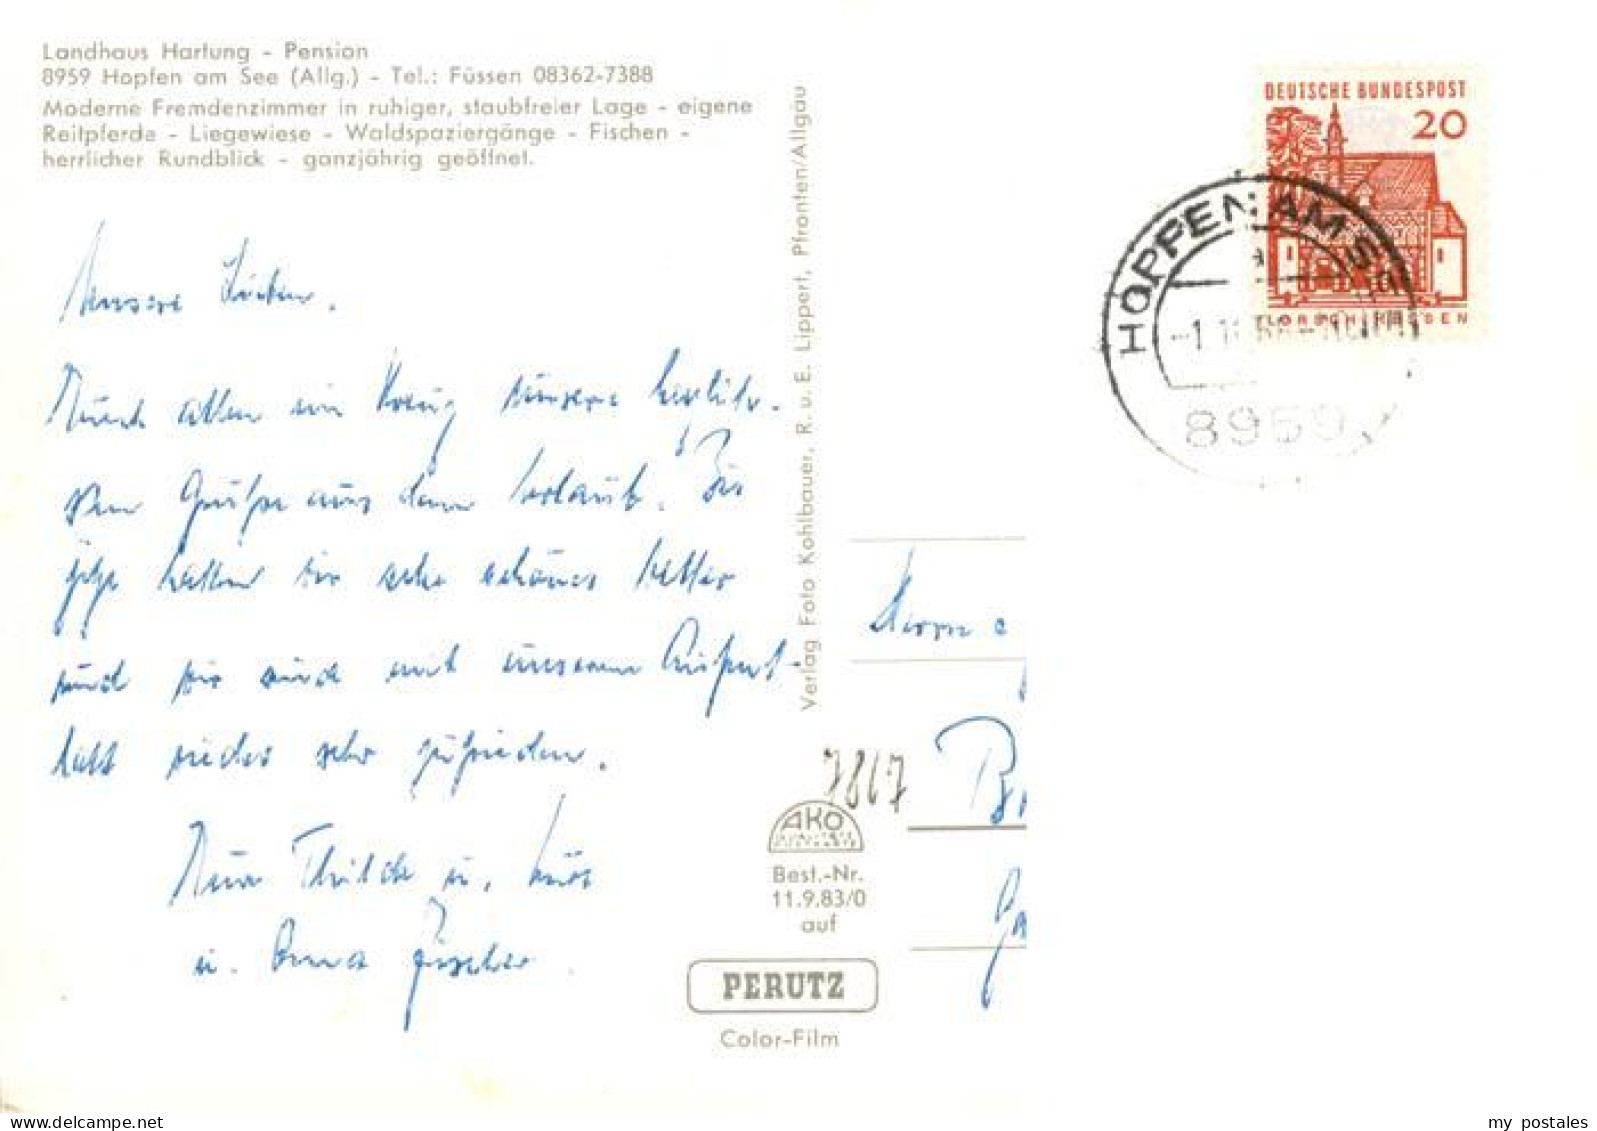 Landhaus Hartung - Pension
8959 Hopfen am See (Allg.) - Tel.: Füssen 08362-7388
Moderne Fremdenzimmer in ruhiger, staubfreier Lage - eigene
Reitpferde - Liegewiese - Waldspaziergänge - Fischen -
herrlicher Rundblick - ganzjährig geöffnet.
Unsere Lieben.
Euch allen ein unsere herzlich-
sten Grüße aus dem Urlaub. Bis
jetzt hatten wir sehr schönes Wetter
und wir sind mit unserem Aufent-
halt wieder sehr zufrieden.
Eure Thilde u.
u. Oma Fischer.
Verlag Foto Kohlbauer, R. u. E. Lippert, Pfronten/Allgäu
DEUTSCHE BUNDESPOST
20
LORSCH/HESSEN
HOPFEN AM SEE
8959
7867
AKO
Best.-Nr.
11.9.83/0
auf
PERUTZ
Color-Film
my postales